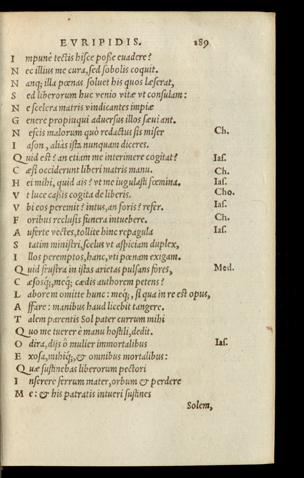 EVRIPIDIS. 189
Impunè tectis hisce posse euadere?
Nec illius me cura, sed sobolis coquit.
Nanq; illa pœnas soluet his quos læserat,
Sed liberorum huc venio vitæ vt consulam:
Ne scelera matris vindicantes impiæ
Genere propiuqui aduersus illos sæuiant.
Nescis malorum quò redactus sis miser Ch.
Iason, aliàs ista nunquam diceres.
Quid est? an etiam me interimere cogitat? Ias.
Cæsi occiderunt liberi matris manu. Ch.
Hei mihi, quid ais? vt me iugulasti fœmina. Ias.
Vt luce cassis cogita de liberis. Cho.
Vbi eos peremit? intus, an foris? refer. Ias.
Foribus reclusis funera intuebere. Ch.
Auferte vectes, tollite hinc repagula Ias.
Statim ministri, scelus vt aspiciam duplex,
Illos peremptos, hanc, vti pœnam exigam.
Quid frustra in istas arietas pulsans fores, Med.
Cæsosq;, meq; cædis authorem petens?
Laborem omitte hunc: meq;, si qua in re est opus,
Affare: manibus haud licebit tangere.
Talem parentis Sol pater currum mihi
Quo me tuerer è manu hostili, dedit.
Odira, dijs ô mulier immortalibus Ias.
Exosa, mihiq;, & omnibus mortalibus:
Quæ sustinebas liberorum pectori
Inserere ferrum mater, orbum & perdere
Me: & his patratis intueri sustines
Solem,